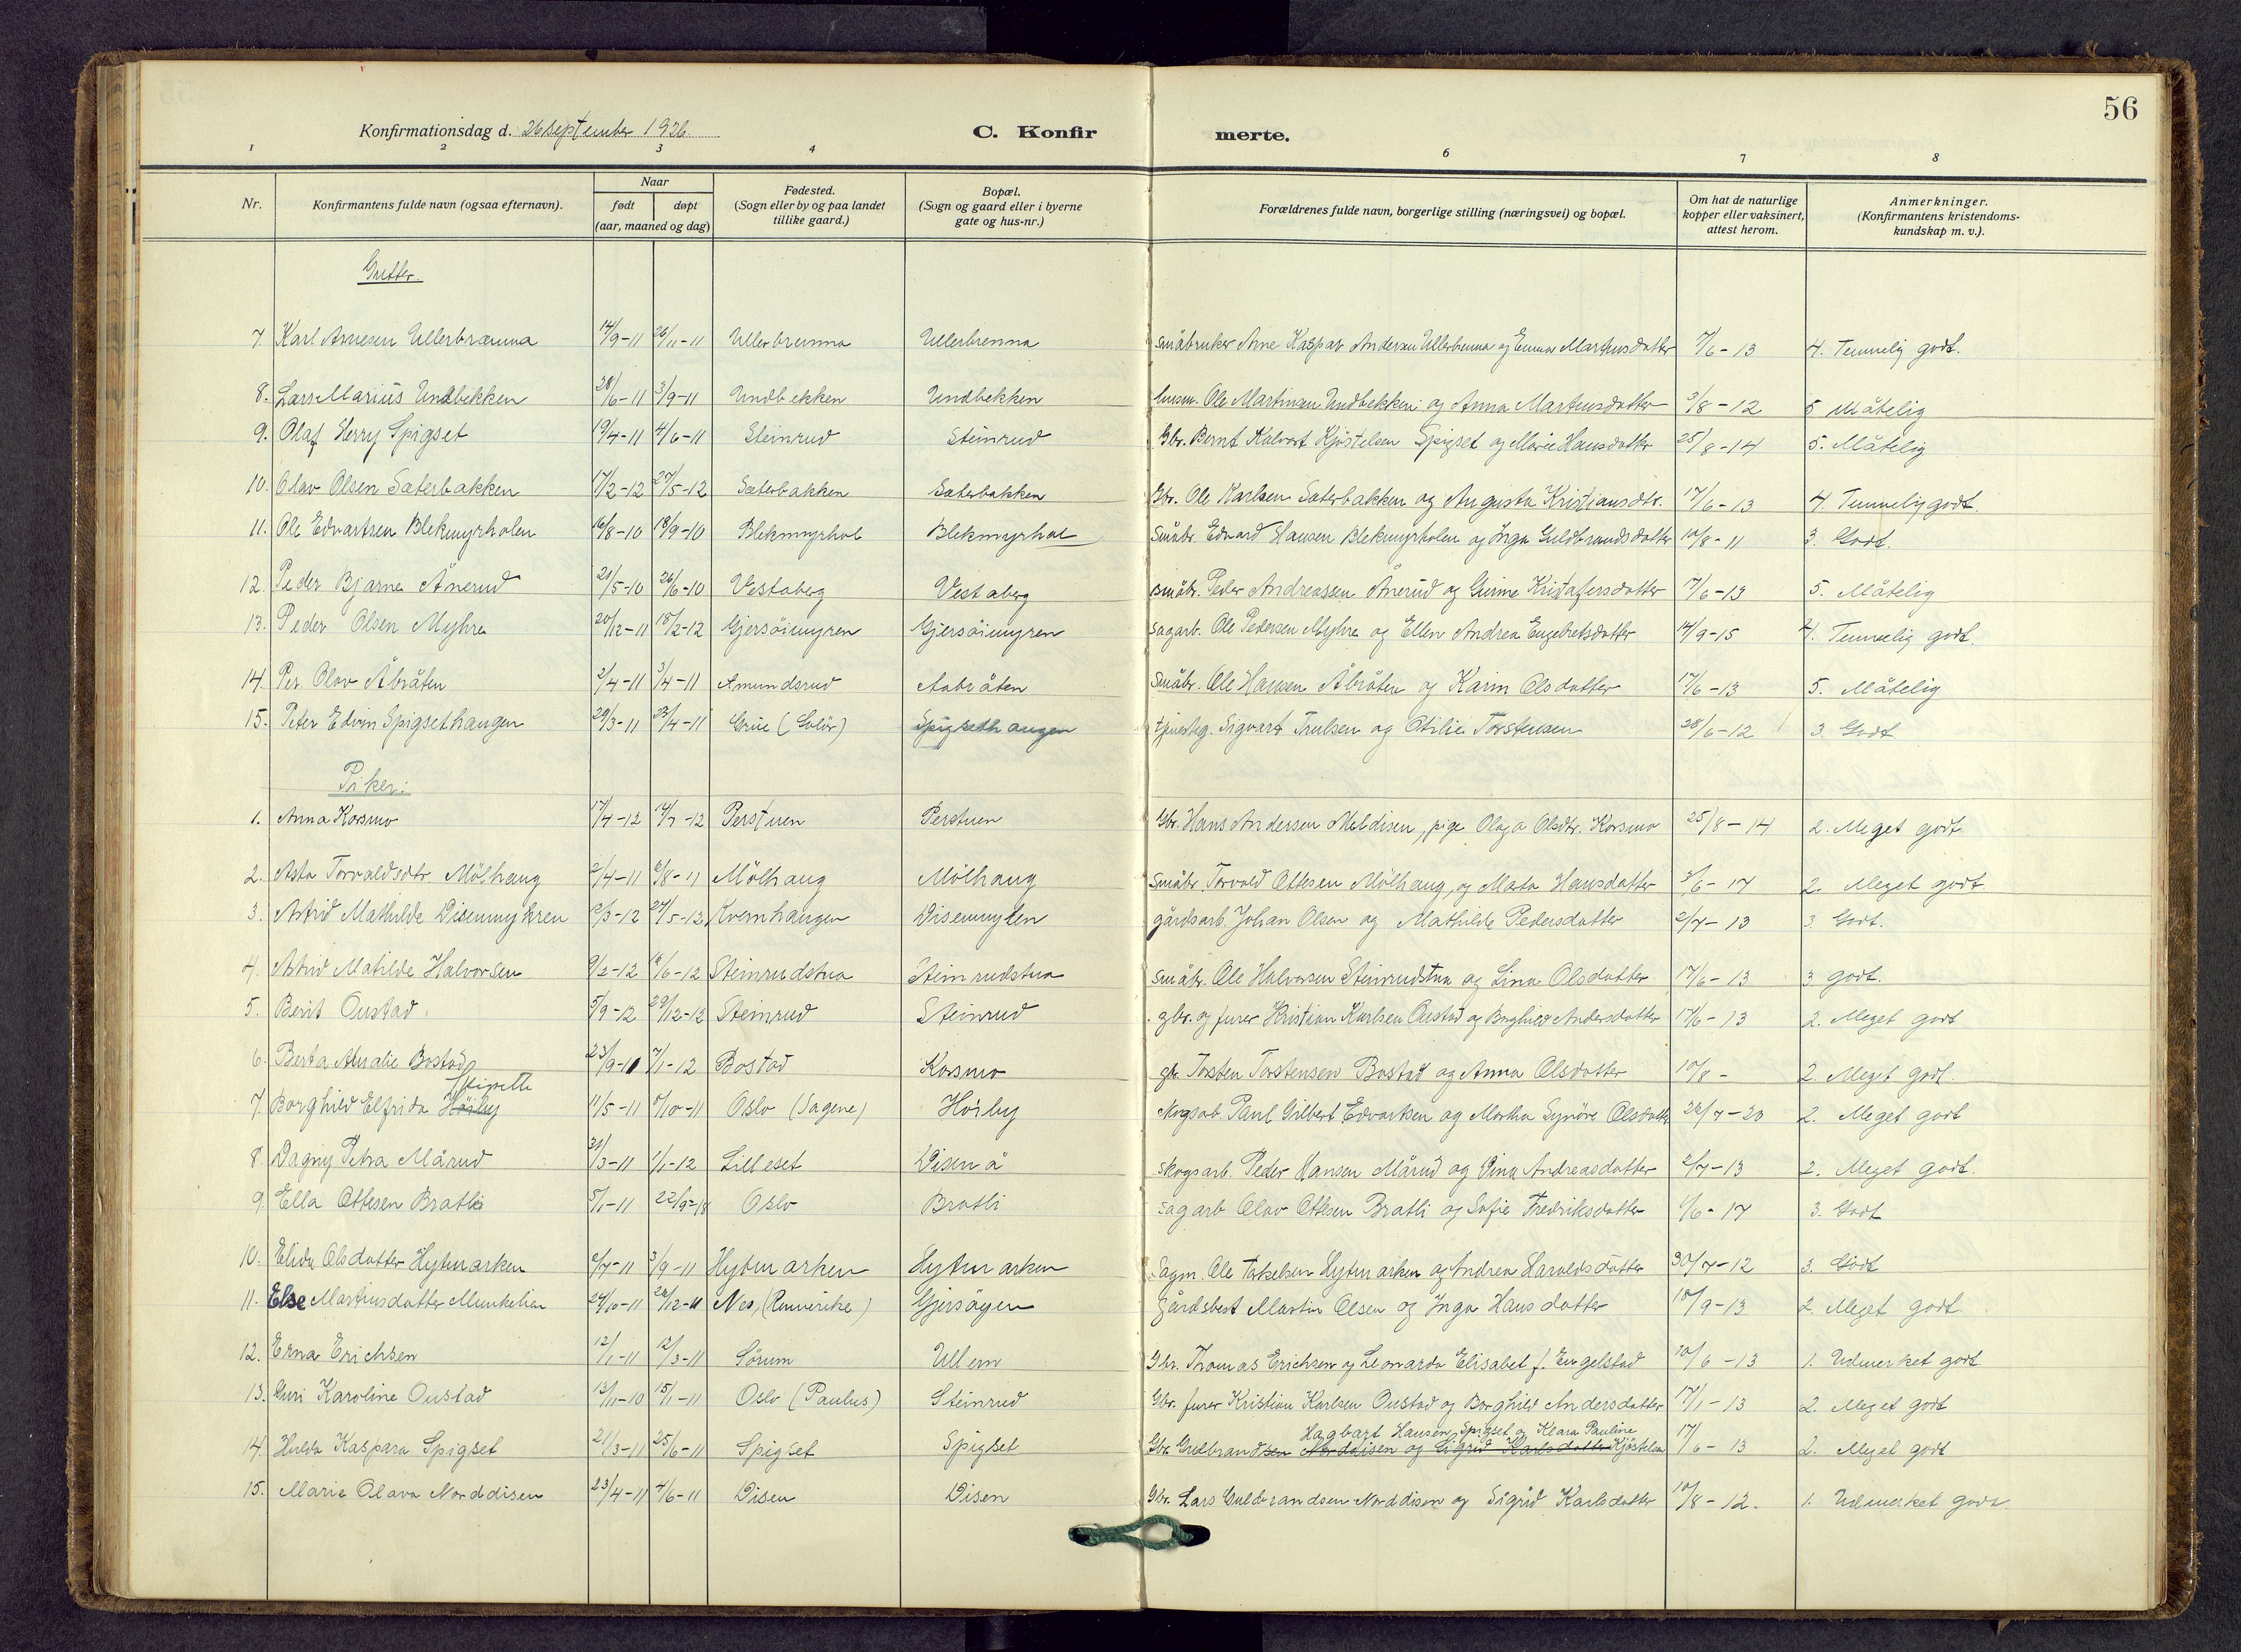 56
Konfirmationsdag d. 26 September 1926.
C. Konfirmerte.
1 2 3 4 6 7 8
Nr. Konfirmantens fulde navn (ogsaa efternavn). Naar født døpt (aar, maaned og dag) Fødested. (Sogn eller by og paa landet tillike gaard.) Bopæl. (Sogn og gaard eller i byerne gate og hus-nr.) Forældrenes fulde navn, borgerlige stilling (næringsvei) og bopæl. Om hat de naturlige kopper eller vaksinert, attest herom. Anmerkninger. (Konfirmantens kristendoms-kundskap m. v.).
Gutter.
7. Karl Arnesen Ullerbrænna 14/9-11 26/11-11 Ullerbrenna Ullerbrenna Småbruker Arne Kaspar Andersen Ullerbrenna og Emma Martinsdatter 7/6-13 4. Temmelig godt.
8. Lars Marius Undbekken 28/6-11 3/9-11 Undbekken Undbekken husm. Ole Martinsen Undbekken og Anna Martinsdatter 3/8-12 5 Måtelig
9. Olaf Herry Spigset 19/4-11 4/6-11 Steinrud Steinrud Gbr. Bernt Halvort Kjöstelsen Spigset og Marie Hansdatter 25/8-14 5. Måtelig
10. Olav Olsen Sæterbakken 17/2-12 27/5-12 Sæterbakken Sæterbakken Gbr. Ole Karlsen Sæterbakken og Augusta Kristiansdtr. 17/6-13 4. Temmelig godt.
11. Ole Edvartsen Blekmyrholen 16/8-10 18/9-10 Blekmyrhol Blekmyrhol Småbr. Edvard Hansen Blekmyrholen og Inga Guldbrandsdatter 10/8-11 3. Godt.
12. Peder Bjarne Ånerud 21/5-10 26/6-10 Vestaberg Vestaberg småbr. Peder Andreassen Ånerud og Gunne Kristofersdatter 7/6-13 5. Måtelig
13. Peder Olsen Myhre 20/12-11 18/2-12 Gjersöimyren Gjersöimyren Sagarb. Ole Pedersen Myhre og Ellen Andrea Engebretsdatter 14/9-15 4. Temmelig godt.
14. Per Olav Åbråten 2/4-11 3/4-11 Amundsrud Aabråten Småbr. Ole Hansen Åbråten og Karin Olsdatter 17/6-13 5. Måtelig
15. Peter Edvin Spigsethaugen 29/3-11 23/4-11 Grue (Solör) Spigsethaugen Sigvart Trulsen og Otilie Torstensen 28/6-12 3. Godt.
Piker:
1. Anna Korsmo 17/4-12 14/7-12 Perstuen Perstuen Gbr. Hans Andersen Meldisen, pige Olaga Olsdtr. Korsmo 25/8-14 2. Meget godt
2. Asta Torvaldsdtr. Mölhaug 2/4-11 6/8-11 Mölhaug Mölhaug Småbr. Torvald Ottesen Mölhaug, og Marta Hansdatter 3/6-17 2. Meget godt
3. Astrid Mathilde Disenmyhren 2/3-12 27/5-12 Kvernhaugen Disenmyren gårdsarb. Johan Olsen og Mathilde Pedersdatter 2/7-13 3. Godt.
4. Astrid Matilde Halvorsen 9/2-12 16/6-12 Steinrudstua Steinrudstua småbr. Ole Halvorsen Steinrudstua og Lina Olsdatter 17/6-13 3 godt.
5. Berit Oustad 5/9-12 29/12-12 Steinrud Steinrud gbr. og furer Kristian Karlsen Oustad og Borghild Andersdatter 17/6-13 2. Meget godt
6. Berta Amalie Bostad 23/9-11 7/1-12 Bostad Korsmo gbr. Torsten Torstensen Bostad og Anna Olsdatter 10/8- 2. Meget godt.
7. Borghild Elfrida Höiby 11/5-11 8/10-11 Oslo (Sagene) Höiby Skogsarb Paul Gilbert Edvartsen og Martha Synöve Olsdatter 22/7-20 2. Meget godt
8. Dagny Petra Mårud 31/3-11 1/1-12 Lilleset Disenå Skogsarb. Peder Hansen Mårud og Dina Andreasdatter 2/7-13 2. Meget godt.
9. Ella Ottesen Bratli 5/1-11 22/9-18 Oslo Bratli Sagarb Olav Ottesen Bratli og Sofie Fredriksdatter 1/6-17 3. Godt
10. Elida Olsdatter Hytmarken 2/7-11 3/9-11 Hytmarken Hytmarken Sagm. Ole Hytmarken og Andrea Haraldsdatter 30/7-12 3. Godt
11. Else Martinsdatter Munkelien 24/10-11 26/12-11 Nes, (Romerike) Gjersöyen Gårdsbest Martin Olsen og Inga Hansdatter 18/9-13 2. Meget godt.
12. Erna Erichsen 12/1-11 12/3-11 Sörum Ullern Gbr. Thomas Erichsen og Leonarda Elisabet f. Engelstad 10/6-13 1. Udmerket godt
13. Guri Karoline Oustad 13/11-10 15/1-11 Oslo (Paulus) Steinrud Gbr. furer Kristian Karlsen Oustad og Borghild Andersdatter 17/1-13 2. Meget godt
Hagbart Hansen Spigset og Klara Pauline
14. Hulda Kaspara Spigset 21/3-11 25/6-11 Spigset Spigset Gbr. Gulbrandsen Norddisen og Sigrid Karlsdatter Kjöstelsen 17/6-13 2. Meget godt
15. Marie Olava Norddisen 23/4-11 4/6-11 Disen Disen Gbr. Lars Guldbrandsen Norddisen og Sigrid Karlsdatter 10/8-12. 1. Udmerket godt.